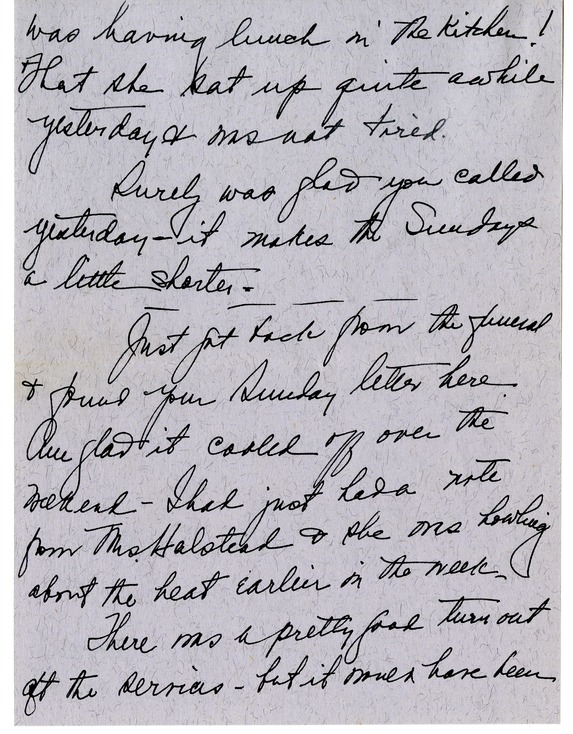 was having lunch in the kitchen!
That she sat up quite awhile
yesterday & was not tired.
Surely was glad you called
yesterday - it makes the Sundays
a little shorter -
Just got back from the funeral
& found your Sunday letter here.
Am glad it cooled off over the
weekend - I had just had a note
from Mrs. Halstead & she was howling
about the heat earlier in the week -
There was a pretty good turn out
at the services - but it have been